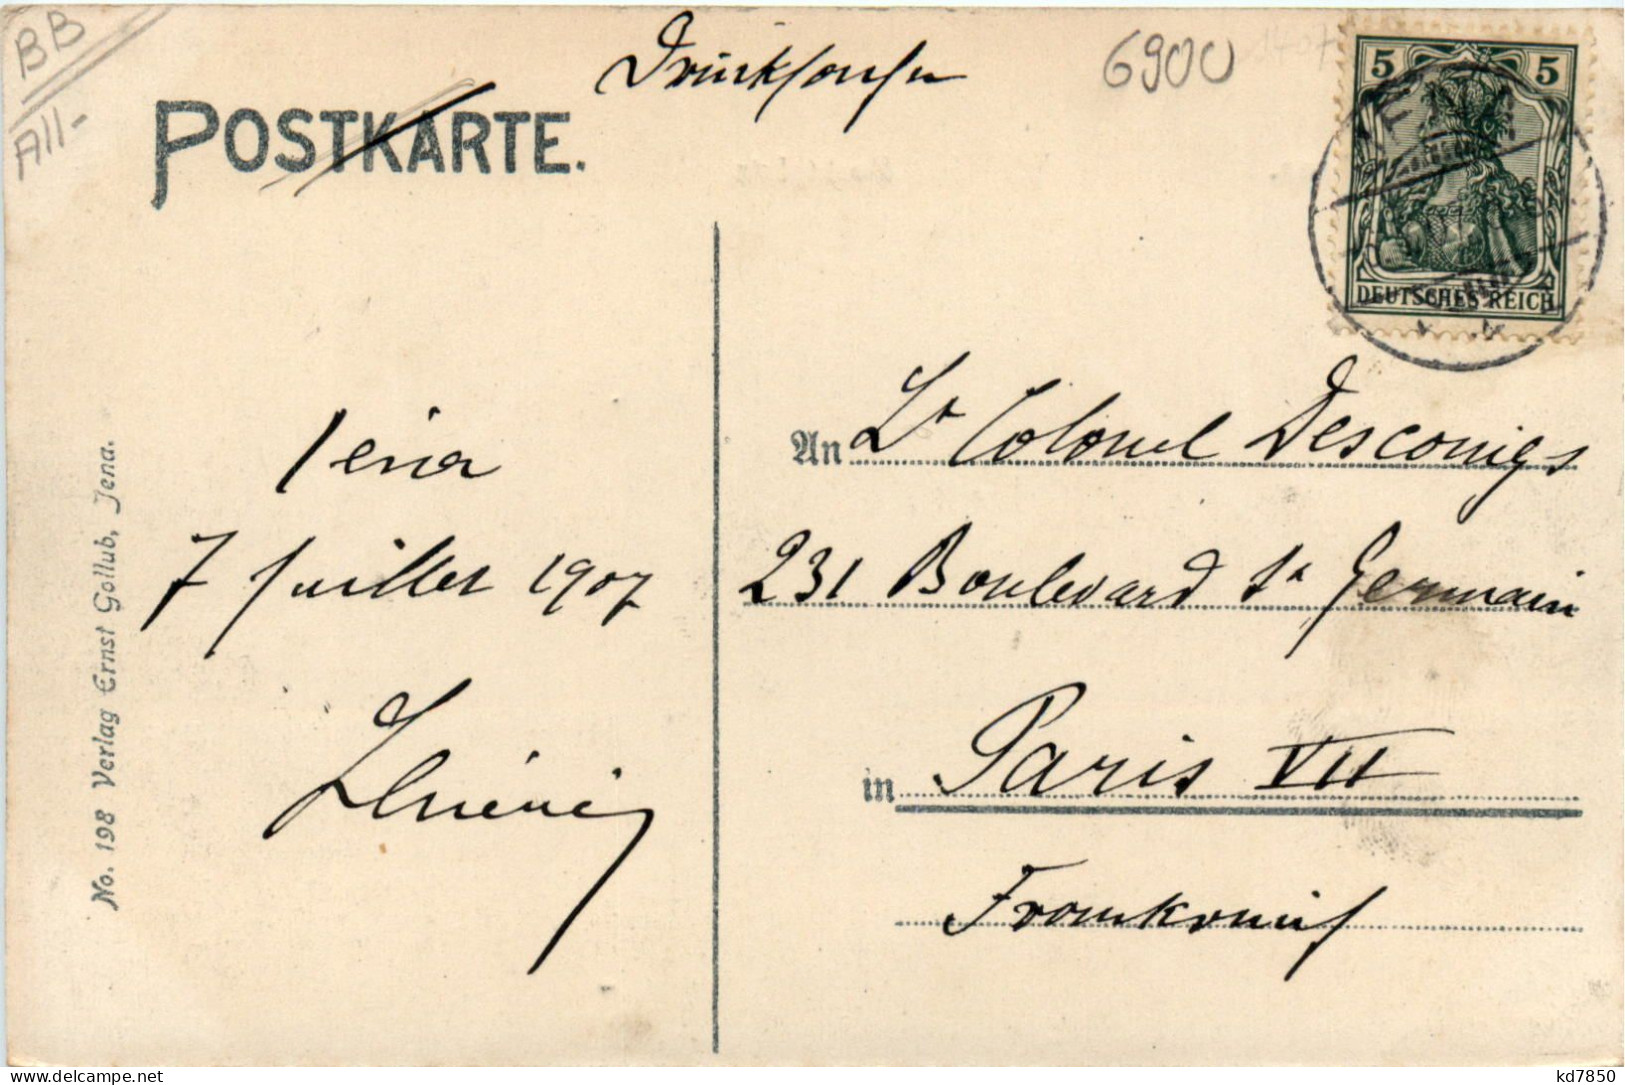 BB
All-
Drucksache
6900
POSTKARTE.
5 5
DEUTSCHES REICH
No. 198 Verlag Ernst Gollub, Jena.
Iena
7 Juillet 1907
An Lt Colonel
231 Boulevard St Germain
in Paris VII
Frankreich
kd7850